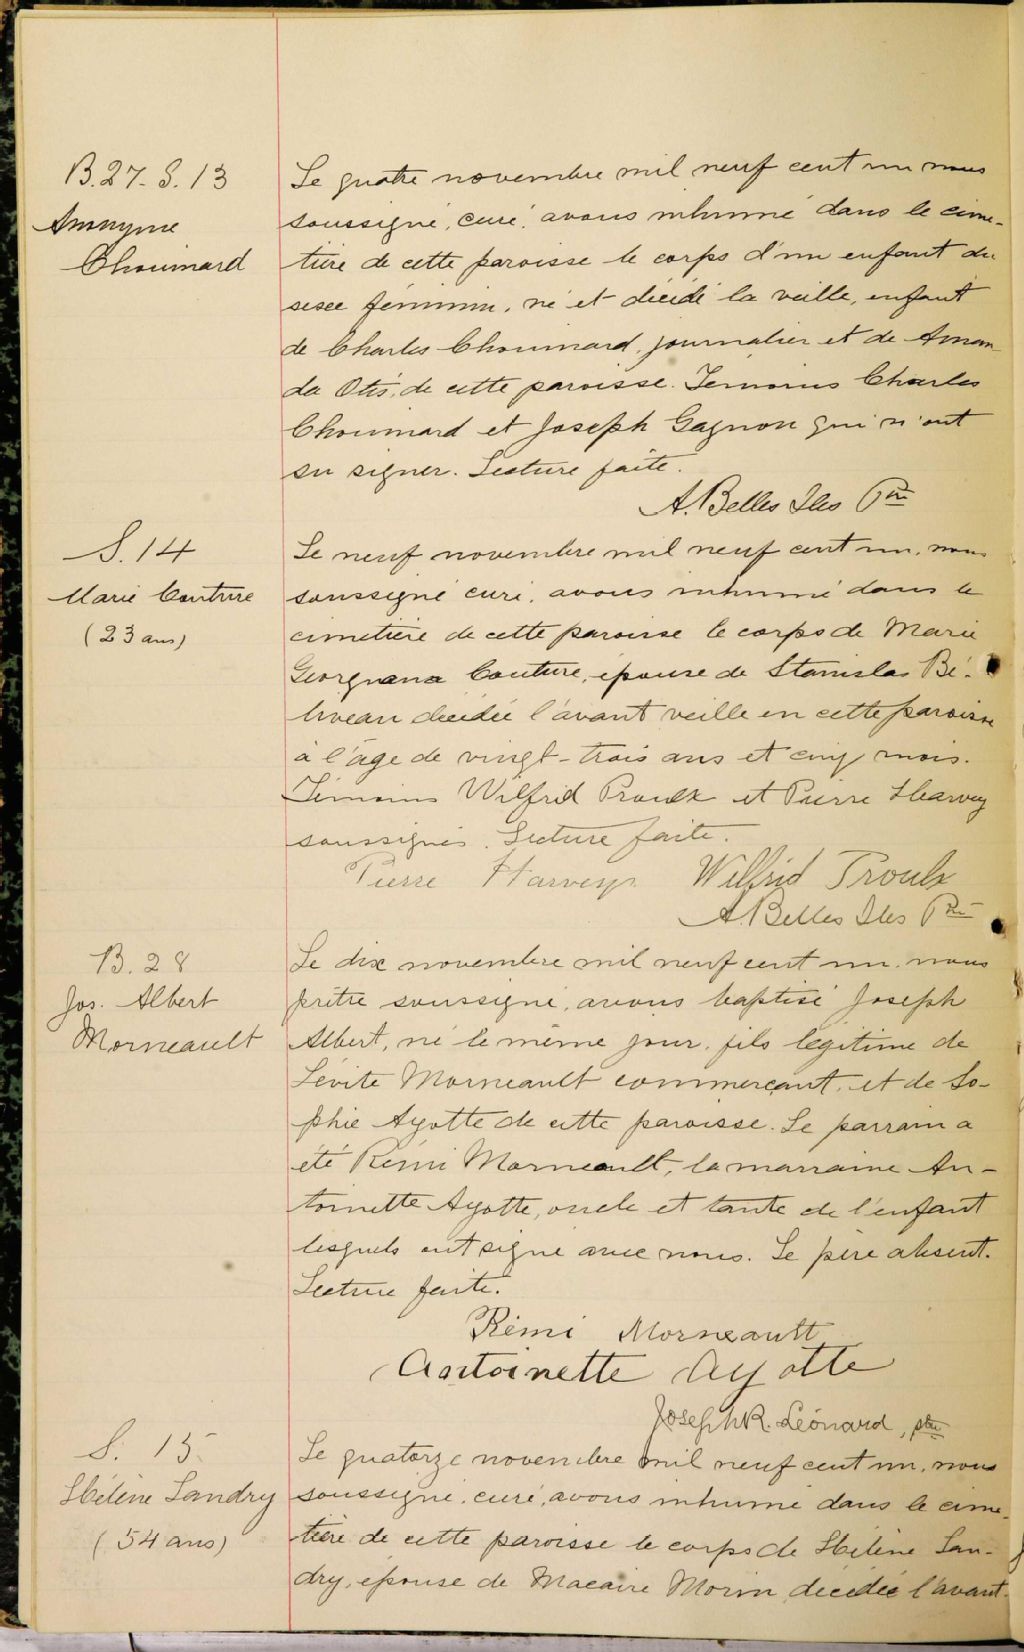 B. 27 - S. 13
Anonyme
Chouinard
Le quatre novembre mil neuf cent un nous
soussigné, curé, avons inhumé dans le cime-
tière de cette paroisse le corps d'un enfant du
sexe féminin, né et décédé la veille, enfant
de Charles Chouinard, journalier et de Aman-
da Otis, de cette paroisse. Témoins Charles
Chouinard et Joseph Gagnon qui n'ont
su signer. Lecture faite.
A. Belles Iles Ptre
S. 14
Marie Couture
(23 ans)
Le neuf novembre mil neuf cent un, nous
soussigné curé, avons inhumé dans le
cimetière de cette paroisse le corps de Marie
Georgiana Couture, épouse de Stanislas Bé-
liveau décédée l'avant veille en cette paroisse
à l'âge de vingt-trois ans et cinq mois.
Témoins Wilfrid Proulx et Pierre Harvey
soussignés. Lecture faite.
Pierre Harvey Wilfrid Proulx
A. Belles Iles Ptre
B. 28
Jos. Albert
Morneault
Le dix novembre mil neuf cent un, nous
prêtre soussigné, avons baptisé Joseph
Albert, né le même jour, fils légitime de
Lévite Morneault commerçant, et de So-
phie Ayotte de cette paroisse. Le parrain a
été Rémi Morneault, la marraine An-
toinette Ayotte, oncle et tante de l'enfant
lesquels ont signé avec nous. Le père absent.
Lecture faite.
Rémi Morneault
Antoinette Ayotte
Joseph R. Léonard, ptre
S. 15
Hélène Landry
(54 ans)
Le quatorze novembre mil neuf cent un, nous
soussigné, curé, avons inhumé dans le cime-
tière de cette paroisse le corps de Hélène Lan-
dry, épouse de Macaire Morin, décédée l'avant-